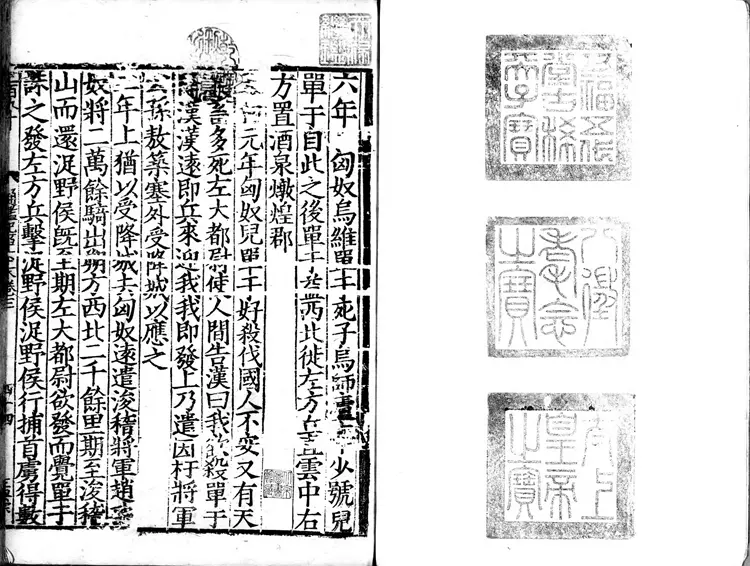 五福五代
堂古稀
天子寶
八徵
耄念
之寶
太上
皇帝
之寶
六年 匈奴烏維單于死子烏師廬立年少號兒
單于自此之後單于益西北徙左方兵直雲中右
方置酒泉燉煌郡
元年匈奴兒單于好殺伐國人不安又有天
畜多死左大都尉使人間告漢曰我欲殺單于
漢漢遠即兵來迎我我即發上乃遣因杅將軍
公孫敖築塞外受降城以應之
二年上猶以受降城去匈奴遠遣浚稽將軍趙破
奴將二萬餘騎出朔方西北二千餘里期至浚稽
山而還浞野侯既至期左大都尉欲發而覺單于
誅之發左方兵擊浞野侯浞野侯行捕首虜得數
通鑑紀事本末卷三
四十四